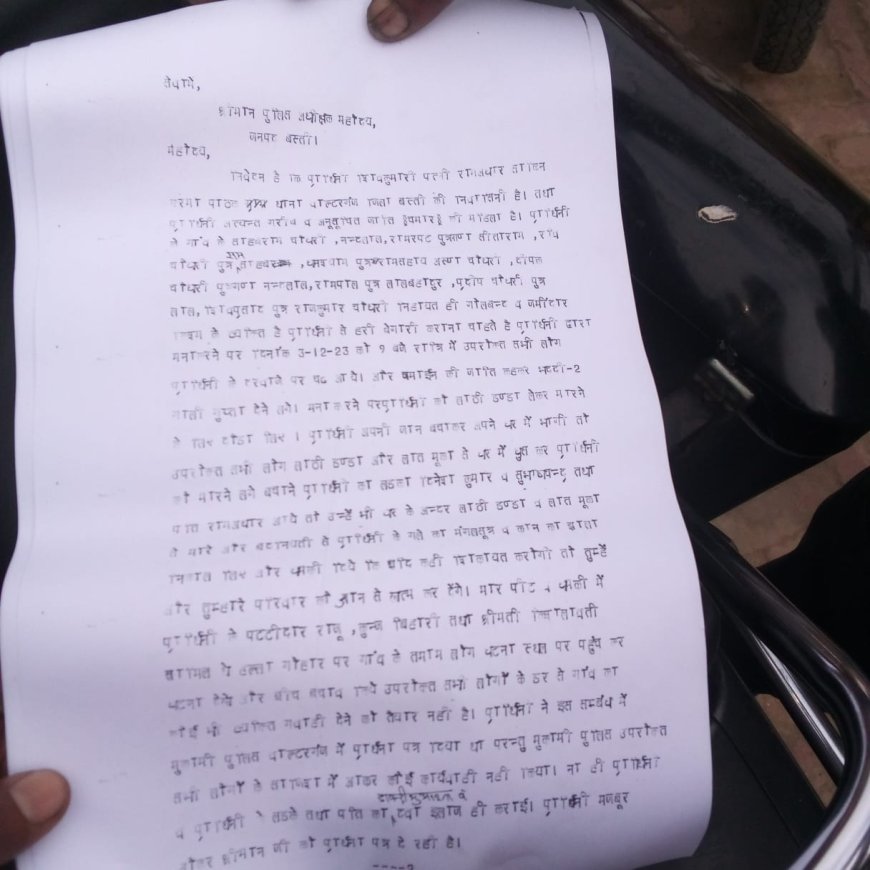 सेवामें,
श्रीमान पुलिस अधीक्षक महोदय,
जनपद बस्ती।
महोदय,
निवेदन है कि प्रार्थिनी शिवकुमारी पत्नी रामअधार साकिन
परसा पाठक थाना वाल्टरगंज जिला बस्ती की निवासिनी है। तथा
प्रार्थिनी अत्यन्त गरीब व अनुसूचित जाति चमार की महिला है। प्रार्थिनी
के गांव के साहबराम चौधरी, नन्दलाल, रामरपट पुत्रगण सीताराम,
चौधरी पुत्र पुत्र रामसहाय चौधरी,
चौधरी पुत्रगण नन्दलाल, रामपाल पुत्र लालबहादुर, प्रदीप चौधरी पुत्र
लाल, शिवप्रसाद पुत्र राजकुमार चौधरी निहायत ही गोलबन्द व जमींदार
किस्म के व्यक्ति है प्रार्थिनी से हरी बेगारी कराना चाहते है प्रार्थिनी द्वारा
मना करने पर दिनांक 3-12-23 को 9 बजे रात्रि में उपरोक्त सभी लोग
प्रार्थिनी के दरवाजे पर चढ आये। और चमाईन की जाति कहकर भददी-2
गाली गुप्ता देने लगे। मना करने पर प्रार्थिनी को लाठी डण्डा लेकर मारने
के लिए दौडा लिए। प्रार्थिनी अपनी जान बचाकर अपने घर में भागी तो
उपरोक्त सभी लोग लाठी डण्डा और लात मूका से घर में घुस कर प्रार्थिनी
को मारने लगे बचाने प्रार्थिनी का लडका दिनेश कुमार व सुभाषचन्द्र तथा
पति रामअधार आये तो उन्हें भी घर के अन्दर लाठी डण्डा व लात मूका
से मारे और बदनियती से प्रार्थिनी के गले का मंगलसूत्र व कान का झाला
निकाल लिए और धमकी दिये कि यदि कही शिकायत करोगी तो तुम्हें
और तुम्हारे परिवार को जान से खत्म कर देंगे। मार पीट व धमकी में
प्रार्थिनी के पटटीदार राजू, कुन्ज बिहारी तथा श्रीमती
सामिल थे हल्ला गोहार पर गांव के तमाम लोग घटना स्थल पर पहुँच कर
घटना देखे और बीच बचाव किये उपरोक्त सभी लोगों के डर से गांव का
कोई भी व्यक्ति गवाही देने को तैयार नही है। प्रार्थिनी ने इस सम्बंध में
मुकामी पुलिस वाल्टरगंज में प्रार्थना पत्र दिया था परन्तु मुकामी पुलिस उपरोक्त
सभी लोगों के साजिश में आकर कोई कार्यवाही नही किया। ना ही प्रार्थिनी
व प्रार्थिनी के लडके तथा पति का दवा इलाज ही कराई। प्रार्थिनी मजबूर
होकर श्रीमान जी को प्रार्थना पत्र दे रही है।
----2